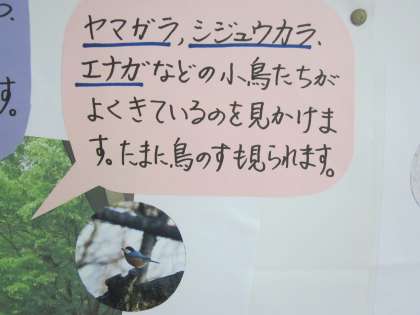 ヤマガラ,シジュウカラ、
エナガなどの小鳥たちが
よくきているのを見かけま
す。たまに鳥のすも見られます。
つ、
す。